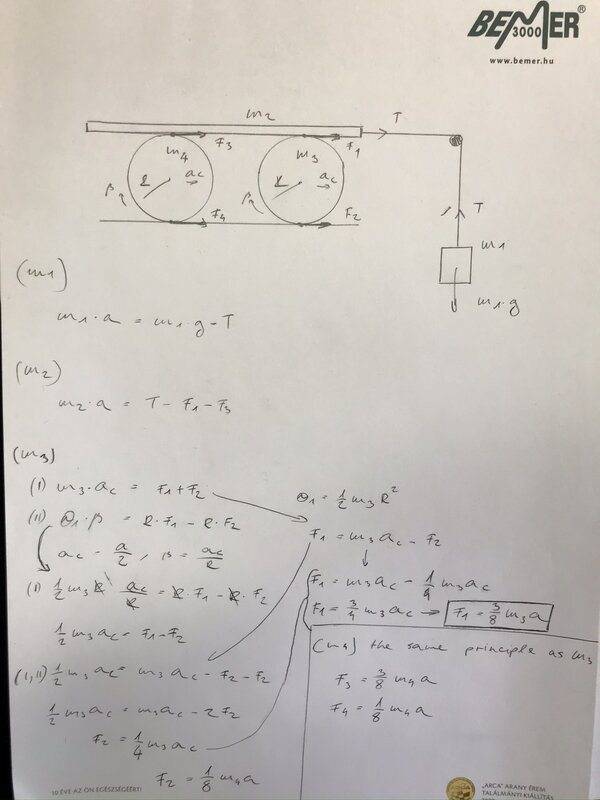 BEMER®
3000
www.bemer.hu
m2
T
F3
F1
m4
m3
R
ac
R
ac
β
β
F4
F2
T
m1
m1·g
(m1)
m1·a = m1·g - T
(m2)
m2·a = T - F1 - F3
(m3)
(I) m3·ac = F1 + F2
(II) Θ1·β = R·F1 - R·F2
ac = a/2, β = ac/R
(II) 1/2 m3 R · ac/R = R·F1 - R·F2
1/2 m3 ac = F1 - F2
(I,II) 1/2 m3 ac = m3 ac - F2 - F2
1/2 m3 ac = m3 ac - 2F2
F2 = 1/4 m3 ac
F2 = 1/8 m4 a
Θ1 = 1/2 m3 R²
F1 = m3 ac - F2
F1 = m3 ac - 1/4 m3 ac
F1 = 3/4 m3 ac → F1 = 3/8 m3 a
(m4) the same principle as m3
F3 = 3/8 m4 a
F4 = 1/8 m4 a
10 ÉVE AZ ÖN EGÉSZSÉGÉÉRT!
„ARCA" ARANY ÉREM
TALÁLMÁNYI KIÁLLÍTÁS